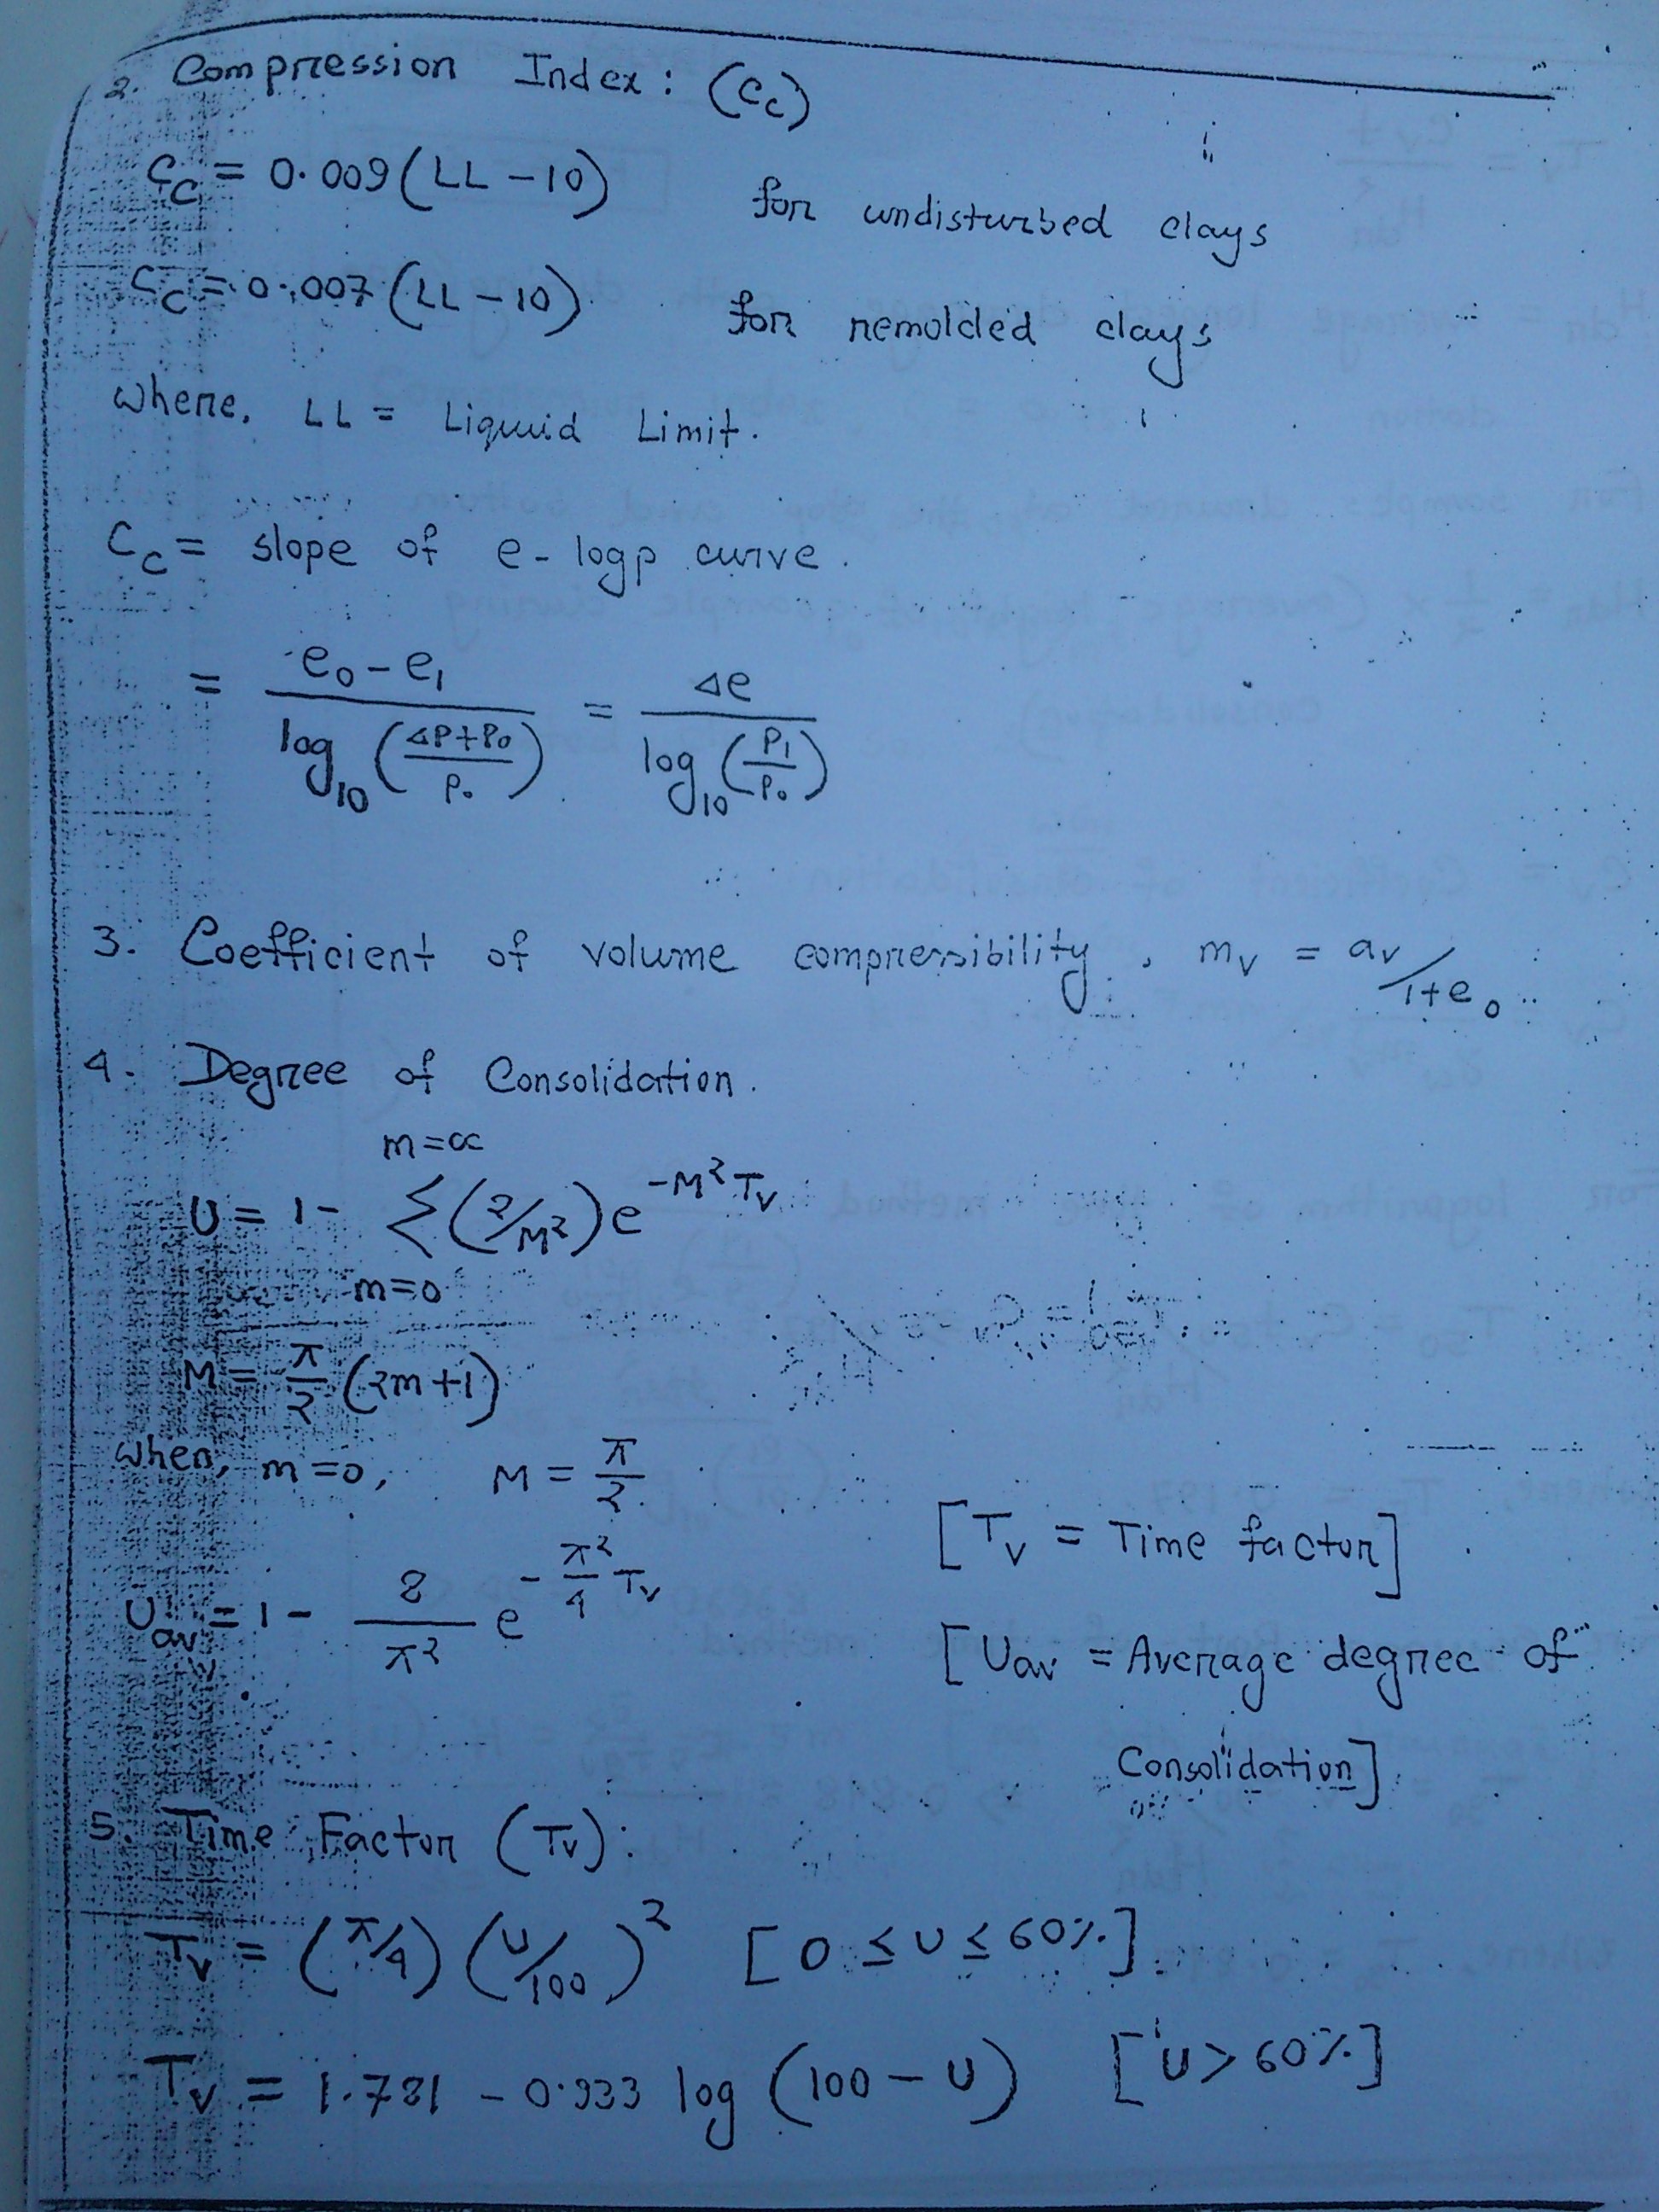 2. Compression Index: (Cc)
Cc = 0.009 (LL - 10) for undisturbed clays
Cc = 0.007 (LL - 10) for remolded clays
where, LL = Liquid Limit.
Cc = slope of e - logp curve.
= (e₀ - e₁) / (log₁₀ ((ΔP+P₀)/P₀)) = Δe / (log₁₀ (P₁/P₀))
3. Coefficient of volume compressibility, mv = av/1+e₀
4. Degree of Consolidation.
m=∝
U = 1 - Σ (2/M²) e^(-M² Tv)
m=0
M = π/2 (2m+1)
when, m=0, M = π/2
[Tv = Time factor]
Uav = 1 - 8/π² e^(-π²/4 Tv)
[Uav = Average degree of
Consolidation]
5. Time Factor (Tv):
Tv = (π/4) (U/100)² [0 ≤ U ≤ 60%]
Tv = 1.781 - 0.933 log (100 - U) [U > 60%]